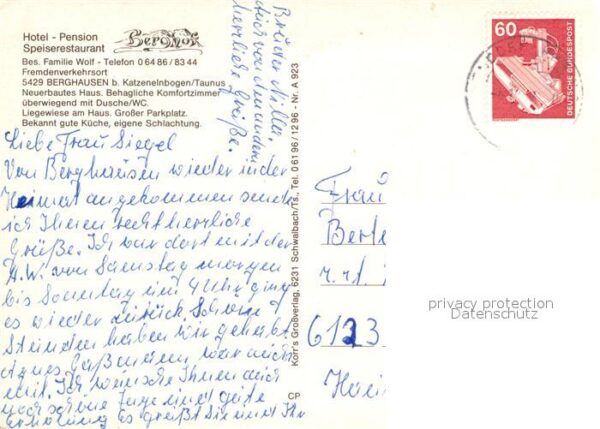 Hotel - Pension
Speiserestaurant
Berghof
Bes. Familie Wolf - Telefon 0 64 86 / 83 44
Fremdenverkehrsort
5429 BERGHAUSEN b. Katzenelnbogen/Taunus
Neuerbautes Haus. Behagliche Komfortzimmer
überwiegend mit Dusche/WC.
Liegewiese am Haus. Großer Parkplatz.
Bekannt gute Küche, eigene Schlachtung.
Liebe Frau Siegel
Von Berghausen wieder in der
Heimat angekommen sende
ich Ihnen recht herzliche
Grüße. Ich war dort mit der
A.W. von Samstag morgen
bis Sonntag um 4 Uhr ging
es wieder zurück. Schöne
Stunden haben wir gehabt.
Agnes Gaßmann war auch
mit. Ich wünsche Ihnen auch
noch schöne Tage und gute
Erholung es grüßt Sie und Ihr
auch von den andern
herzliche Grüße.
Korr's Großverlag, 6231 Schwalbach/Ts., Tel. 0 61 96 / 12 96 - Nr. A 923
CP
60
DEUTSCHE BUNDESPOST
Frau
6123
privacy protection
Datenschutz